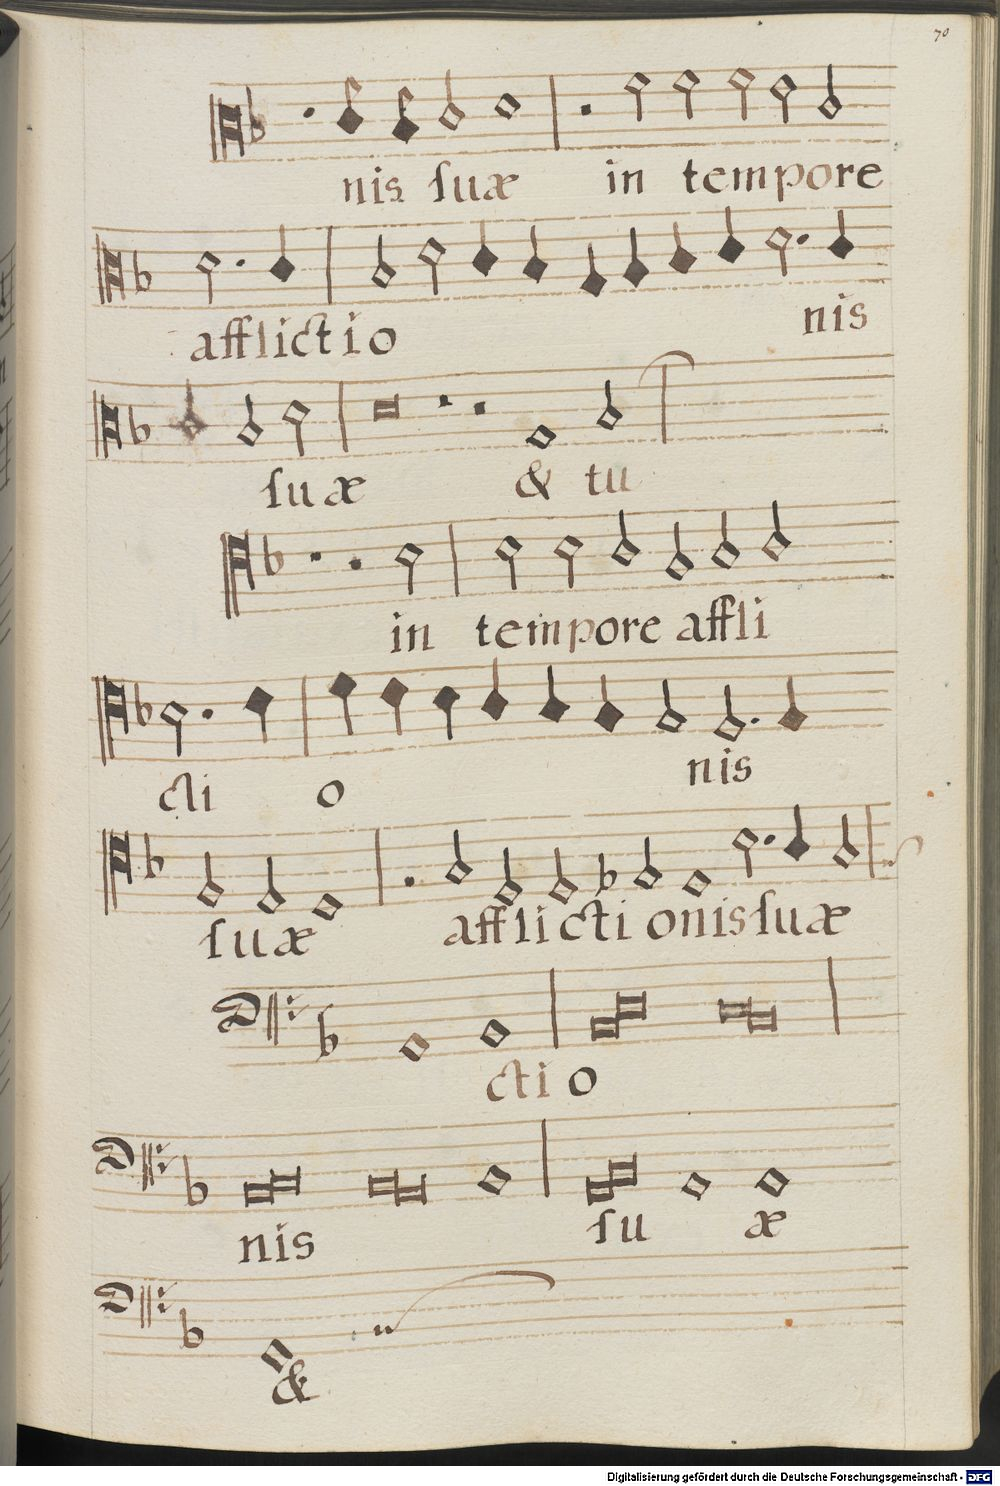 70
nis suæ in tempore
afflictio nis
suæ & tu
in tempore affli
cti o nis
suæ afflicti onis suæ
cti o
nis su æ
&
Digitalisierung gefördert durch die Deutsche Forschungsgemeinschaft - DFG